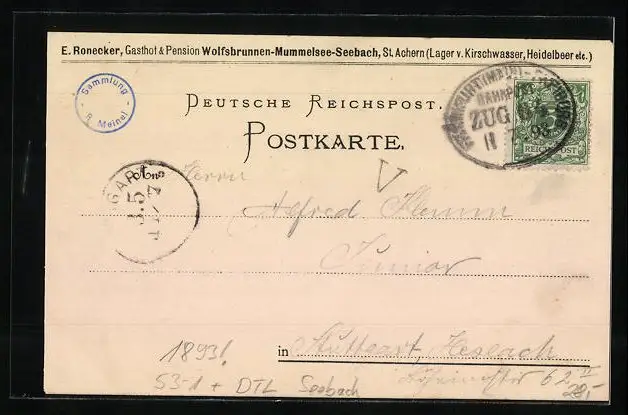 E. Ronecker, Gasthof & Pension Wolfsbrunnen-Mummelsee-Seebach, St. Achern (Lager v. Kirschwasser, Heidelbeer etc.)
Sammlung
R. Meinel
DEUTSCHE REICHSPOST.
POSTKARTE.
BAHNPOST
ZUG
REICHSPOST
An
Herrn
Alfred Klemm
Junior
in Stuttgart, Heslach
62 II
1893!
S3-1 + DTL Seebach
20,-